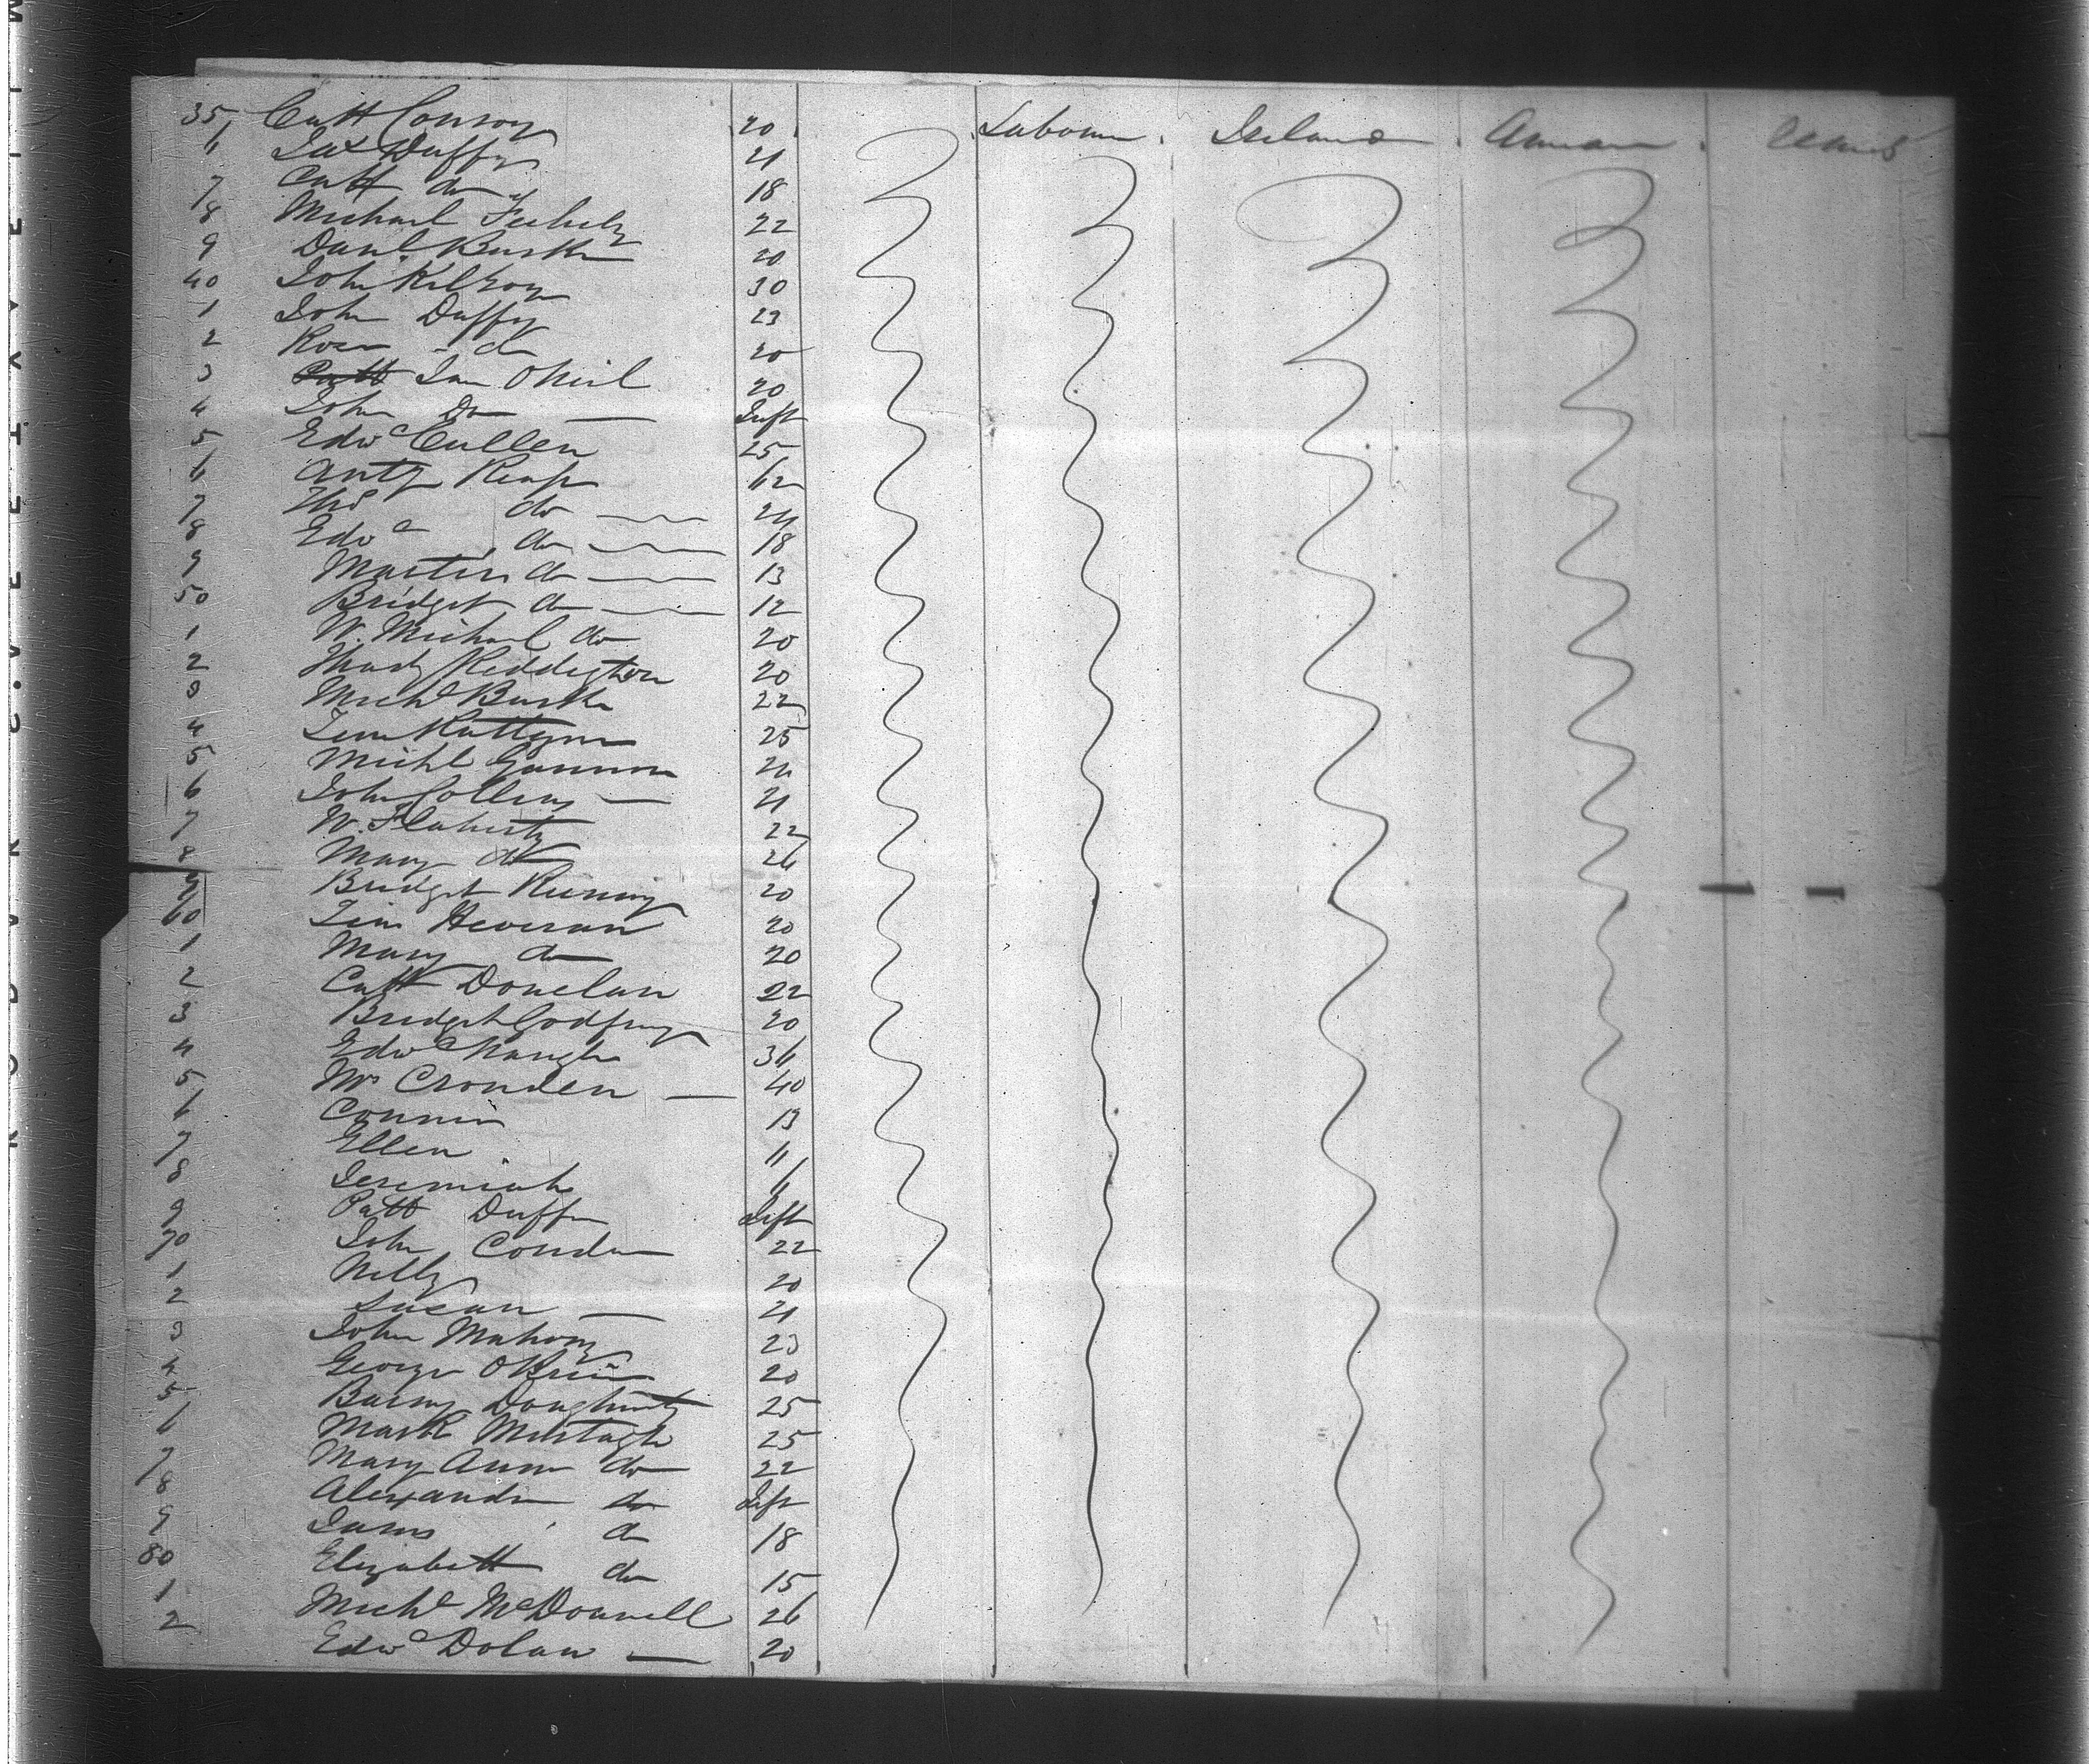 35 Cath Conroy 20 Labourer. Ireland. American
6 Jas Duffy 21
7 Cath do 18
8 Michael Feehely 22
9 Danl. Burke 20
40 John Kilroy 30
1 John Duffy 23
2 Rose do 20
3 Patt Jam ONeil 20
4 John Do Inft
5 Edwd Cullen 25
6 Anty Reap 62
7 Thos do 24
8 Edwd do 18
9 Martin do 13
50 Bridget do 12
1 W. Michael do 20
2 Thady Reddigton 20
3 Michl Burke 22
4 Rattgan 25
5 Michl Gannon
6 John Collins 21
7 W. Flaherty 22
8 Mary do 26
9 Bridget 20
60 Tim Heveran 20
1 Mary do 20
2 Cath Donelan 22
3 Bridget Godfrey 20
4 Edwd 36
5 Cronden 40
6 13
7 Ellen 11
8 Jeremiah 6
9 Patt Duffy Inft
70 John 22
1 Nelly 20
2 Susan 21
3 John Mahony 23
4 George OBrien 20
5 Barny Dougherty 25
6 Mark Murtagh 25
7 Mary Ann do 22
8 Alexander do Inft
9 James do 18
80 Elizabeth do 15
1 Michl McDonnell 26
2 Edwd Dolan 20